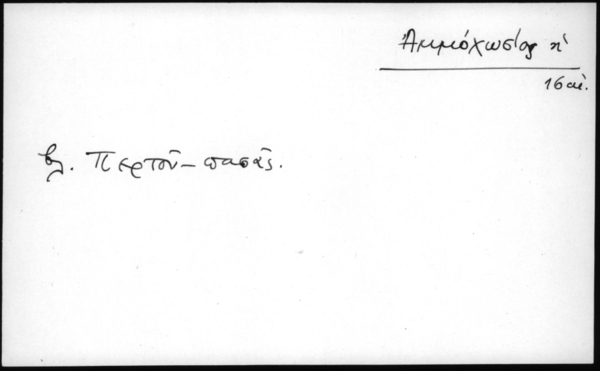 Ἀμμόχωστος ἡ
16 αἰ.
βλ. Περτοῦ-πασᾶς.